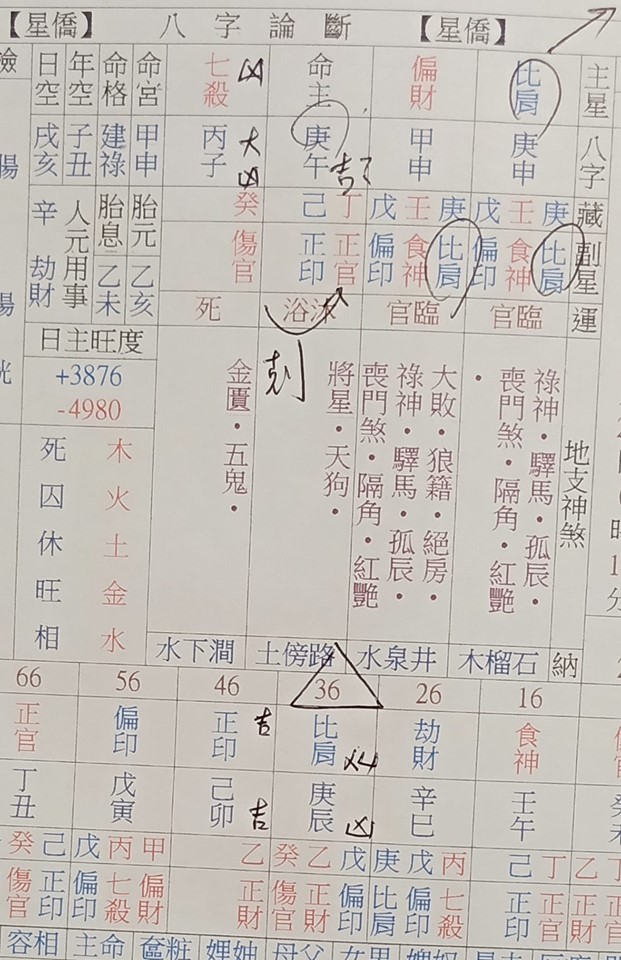 【星僑】 八字論斷 【星僑】
主星 比肩 偏財 命主 七殺 凶
八字 庚申 甲申 庚午 丙子 大凶
藏 庚壬戊 庚壬戊 丁己 癸
副星 比肩 食神 偏印 比肩 食神 偏印 正官 正印 傷官
運 臨官 臨官 沐浴 死
地支神煞
祿神・驛馬・孤辰・
喪門煞・隔角・紅艷
・
大敗・狼籍・絕房・
祿神・驛馬・孤辰・
喪門煞・隔角・紅艷
將星・天狗・
剋
金匱・五鬼・
納 石榴木 井泉水 路傍土 澗下水
命宮 甲申
命格 建祿
年空 子丑
日空 戌亥
胎元 乙亥
胎息 乙未
人元用事
辛 劫財
日主旺度
+3876
-4980
木 死
火 囚
土 休
金 旺
水 相
16 26 36 46 56 66
食神 劫財 比肩 凶 正印 吉 偏印 正官
壬午 辛巳 庚辰 凶 己卯 吉 戊寅 丁丑
丁己 丙戊庚 戊乙癸 乙 甲丙戊 己癸
正官 正印 七殺 偏印 比肩 偏印 正財 傷官 正財 偏財 七殺 偏印 正印 傷官
男女 父母 命主 相容